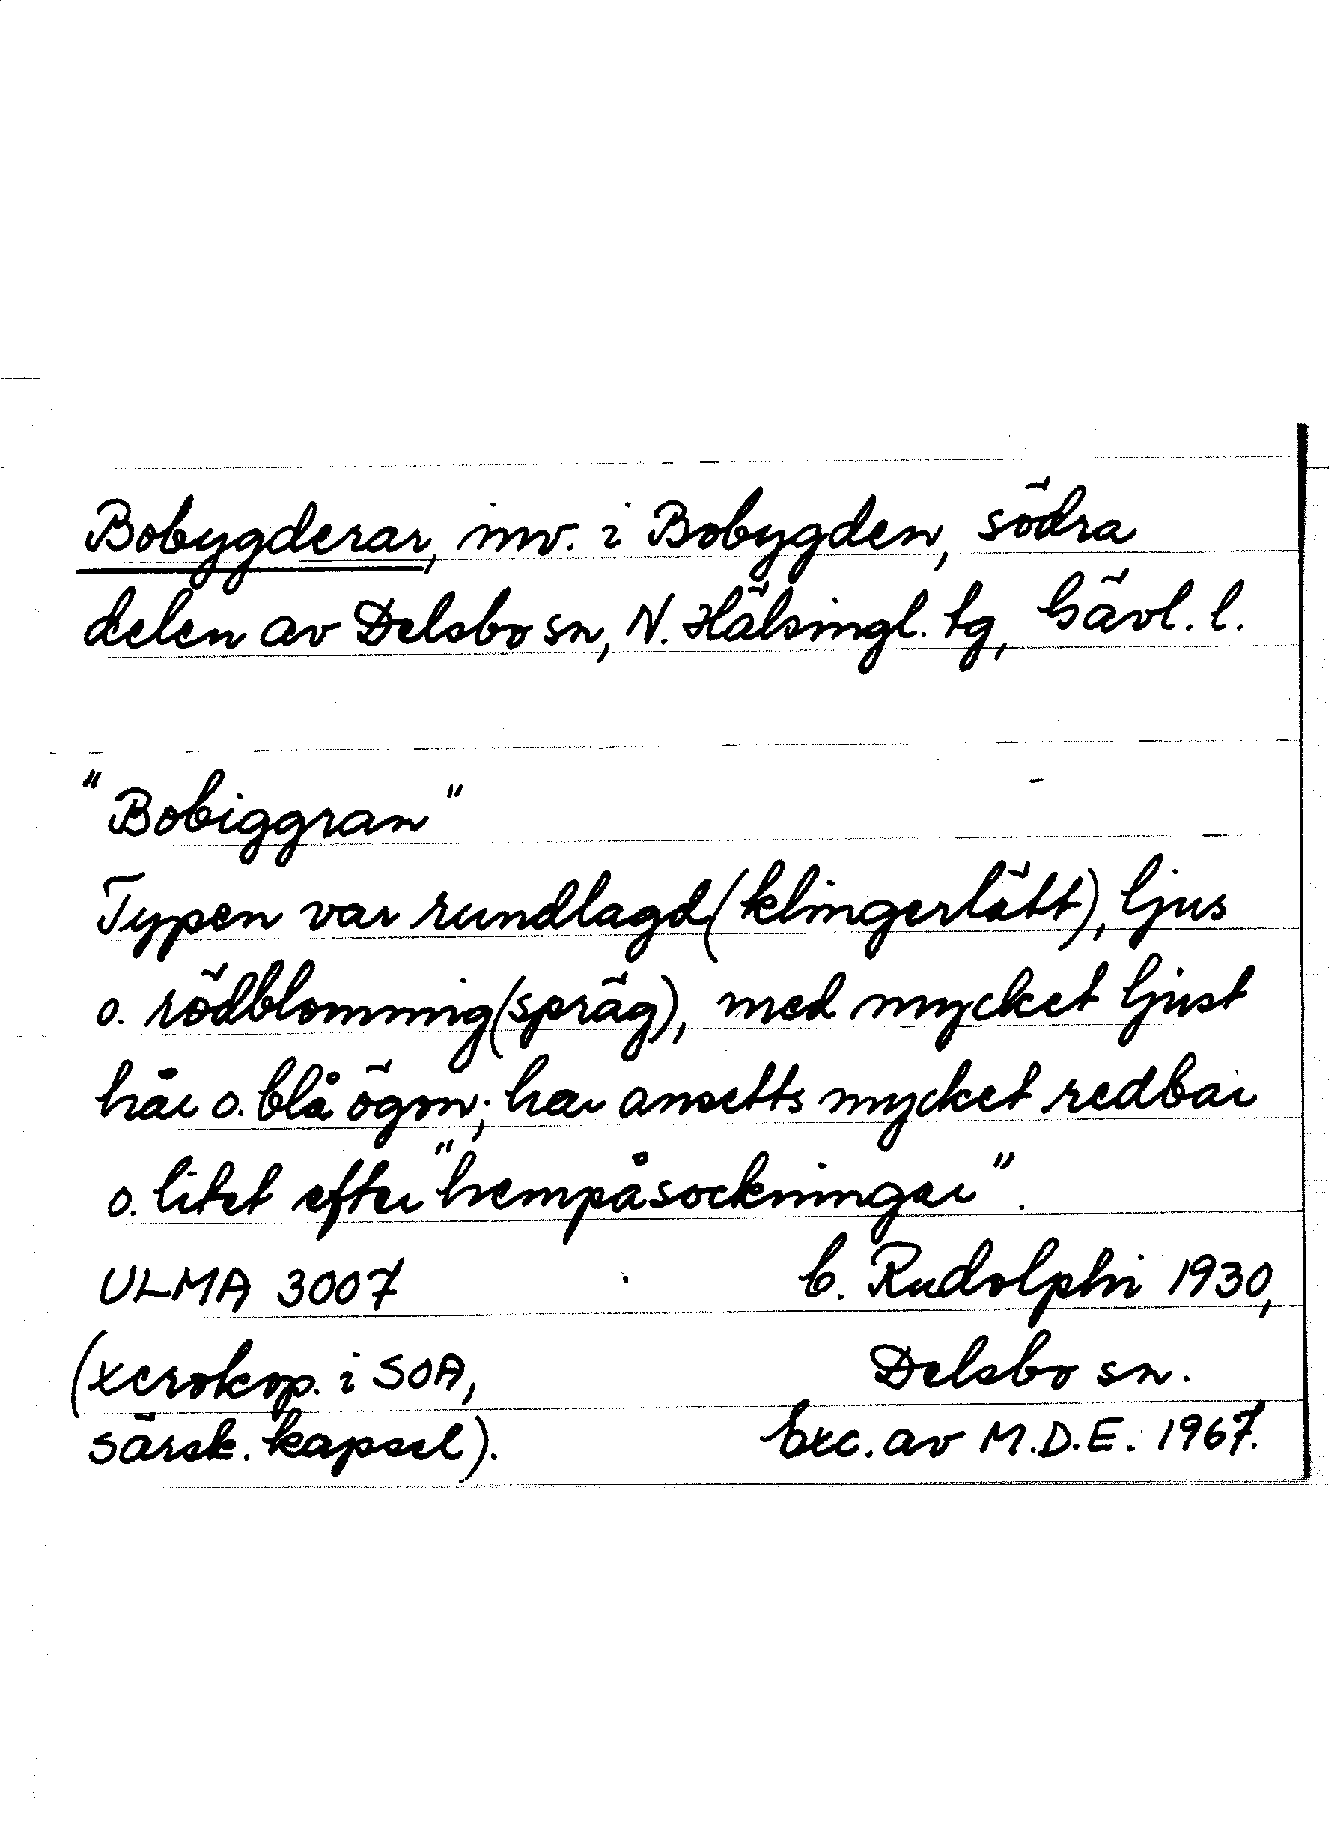 Bobygderar, inv. i Bobygden, södra
delen av Delsbo sn, N. Hälsingl. tg, Gävl. l.
"Bobiggran"
Typen var rundlagd (klingerlätt), ljus
o. rödblommig (spräg), med mycket ljust
hår o. blå ögon; har ansetts mycket redbar
o. litet efter "hempåsockningar".
ULMA 3007 C. Rudolphi 1930,
(xerokop. i SOA, Delsbo sn.
särsk. kapsel). Exc. av M.D.E. 1967.